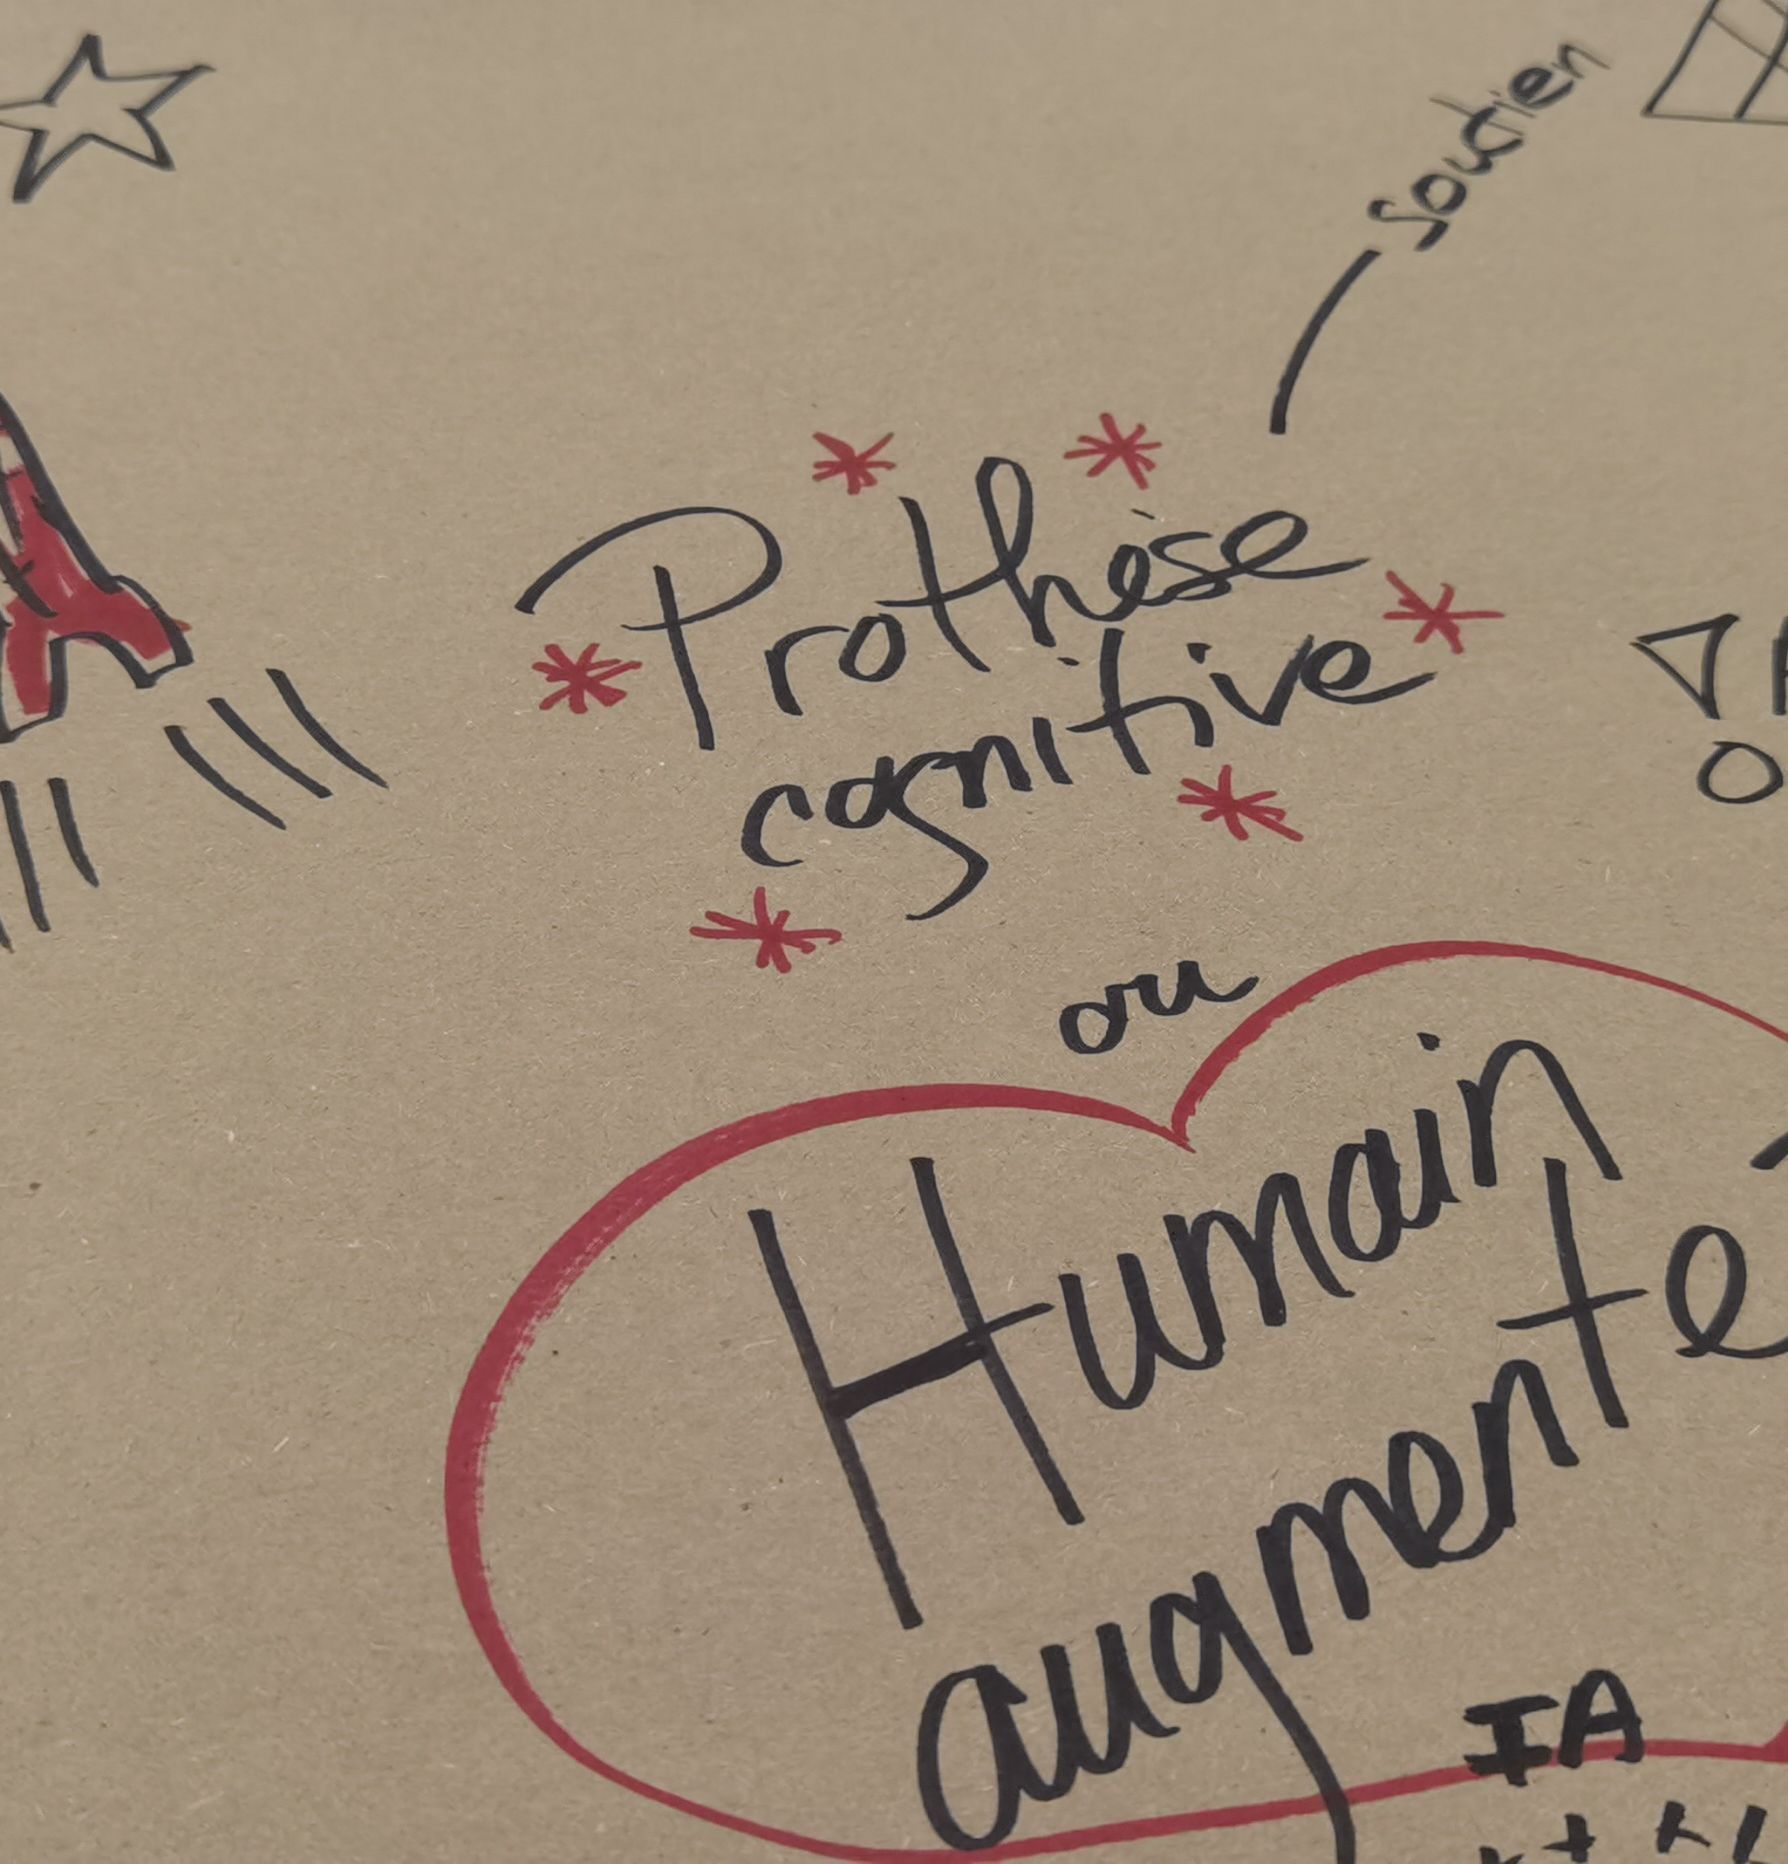 Soutien
Prothèse
cognitive
ou
Humain
augmenté
IA